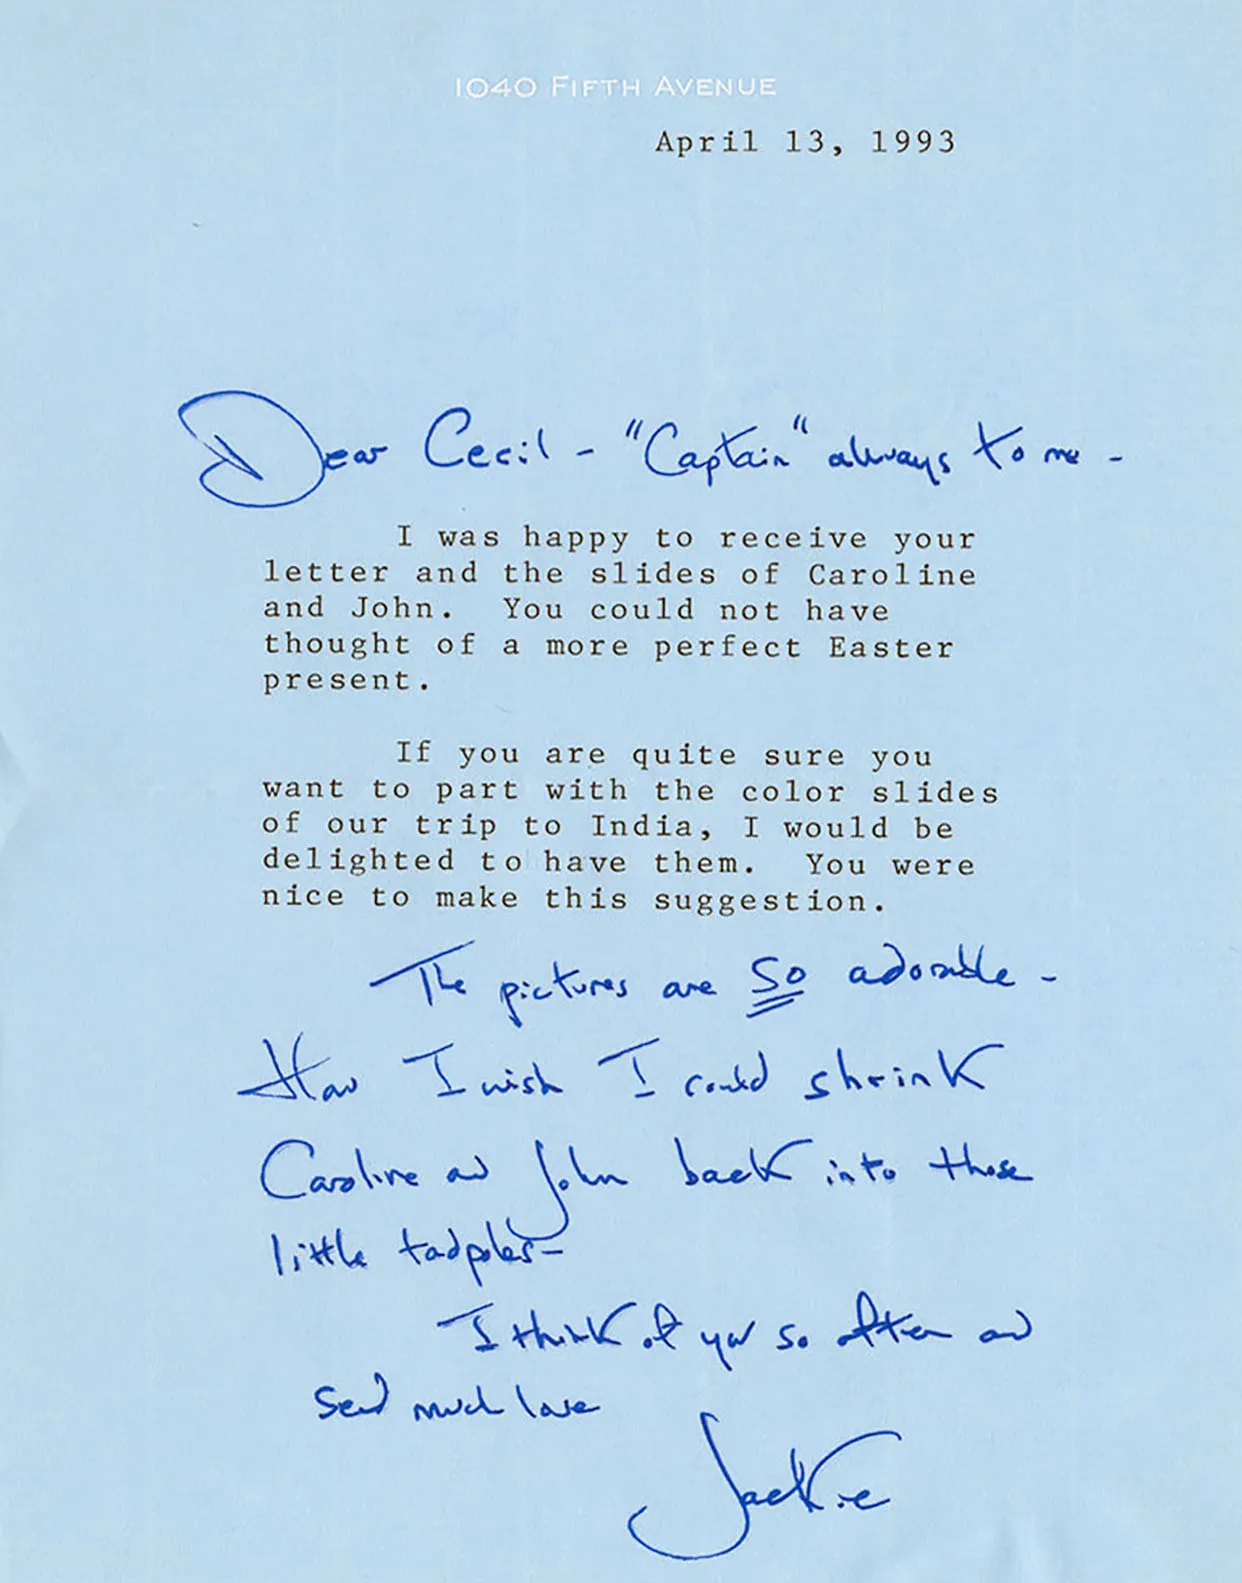 1040 FIFTH AVENUE
April 13, 1993
Dear Cecil - "Captain" always to me -
I was happy to receive your
letter and the slides of Caroline
and John. You could not have
thought of a more perfect Easter
present.
If you are quite sure you
want to part with the color slides
of our trip to India, I would be
delighted to have them. You were
nice to make this suggestion.
The pictures are So adorable -
How I wish I could shrink
Caroline and John back into those
little tadpoles-
I think of you so often and
send much love
Jackie